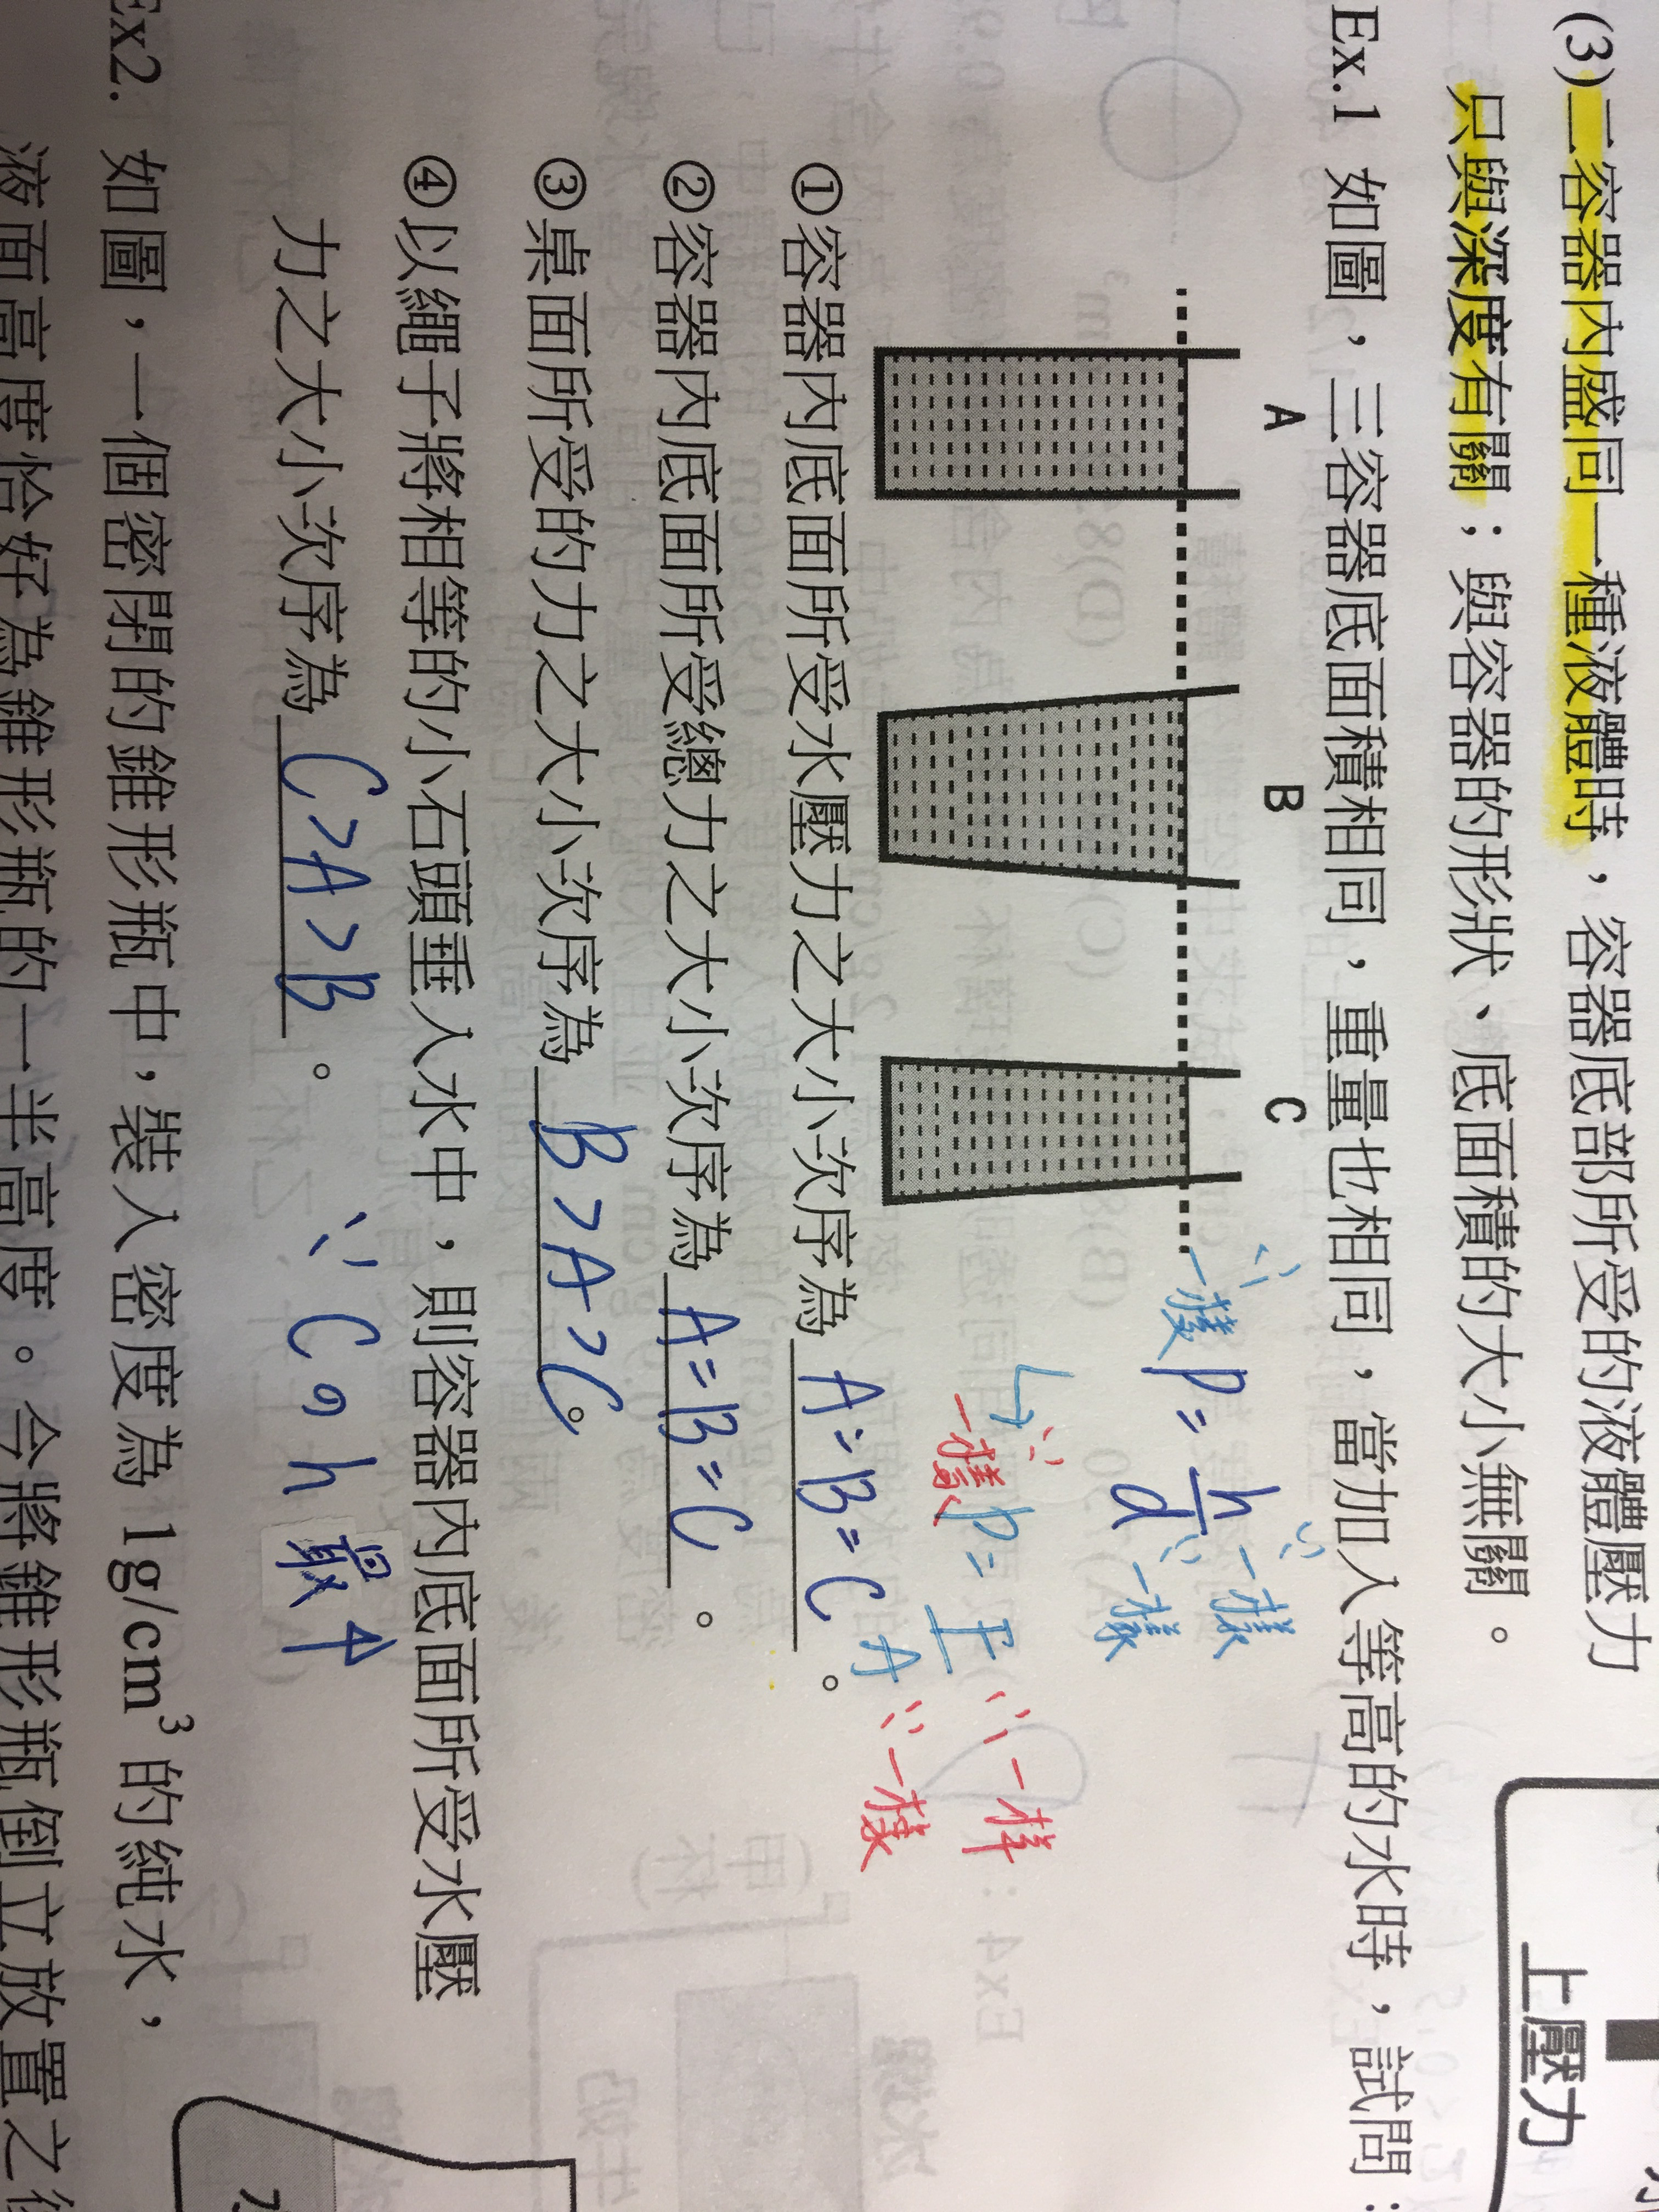 (3)二容器內盛同一種液體時，容器底部所受的液體壓力
只與深度有關；與容器的形狀、底面積的大小無關。
上壓力
Ex.1 如圖，三容器底面積相同，重量也相同，當加入等高的水時，試問：
A B C
∵一樣 P = h/d ∵一樣 ∵一樣
∵一樣 P = F/A ∵一樣 ∵一樣
①容器內底面所受水壓力之大小次序為 A=B=C 。
②容器內底面所受總力之大小次序為 A=B=C 。
③桌面所受的力之大小次序為 B>A>C 。
④以繩子將相等的小石頭垂入水中，則容器內底面所受水壓
力之大小次序為 C>A>B 。 ∵C的h最↑
Ex2. 如圖，一個密閉的錐形瓶中，裝入密度為 1g/cm³ 的純水，
液面高度恰好為錐形瓶的一半高度。今將錐形瓶倒立放置之後